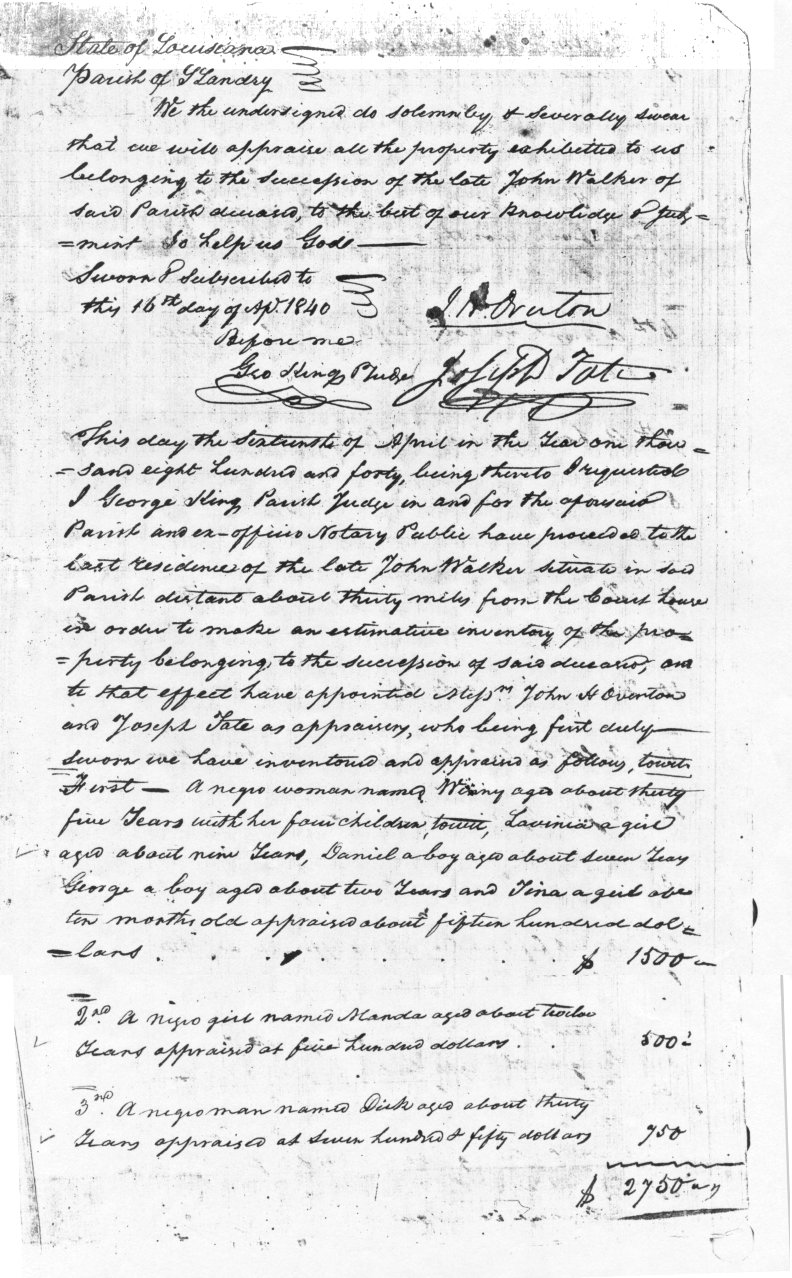 State of Louisiana
Parish of St Landry
We the undersigned do solemnly & severally swear
that we will appraise all the property exhibitted to us
belonging to the succession of the late John Walker of
said Parish deceased, to the best of our knowlidge & Judg=
=ment So help us God
Sworn & Subscribed to
this 16th day of Apl. 1840
Before me
J. H. Overton
Geo King P Judge
Joseph Tate
This day the Sixteenth of April in the Year one thou=
=sand eight hundred and forty, being thereto requested
I George King Parish Judge in and for the aforesaid
Parish and ex-officio Notary Public have proceeded to the
last residence of the late John Walker situate in said
Parish distant about thirty miles from the Court house
in order to make an estimative inventory of the pro=
=perty belonging to the succession of said deceased, and
to that effect have appointed Messrs John H Overton
and Joseph Tate as appraisers, who being first duly
sworn we have inventoried and appraised as follows, towit
First — A negro woman named Winny aged about thirty
five Years with her four children, towit, Lavinia a girl
aged about nine Years, Daniel a boy aged about seven Years
George a boy aged about two Years and Tina a girl abo
ten months old appraised about fifteen hundred dol=
=lars . . . . . . . . $ 1500
2nd A negro girl named Manda aged about twelve
Years appraised at five hundred dollars . . 500
3rd A negro man named Dick aged about thirty
Years appraised at seven hundred & fifty dollars 750
$ 2750